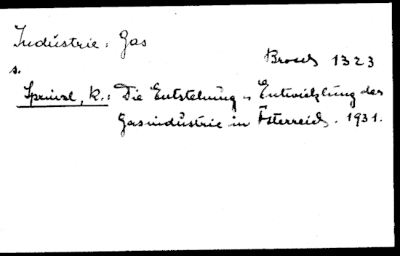 Industrie: Gas
Brosch 1323
s.
K.: Die Entstehung u. Entwicklung der
Gasindustrie in Österreich. 1931.